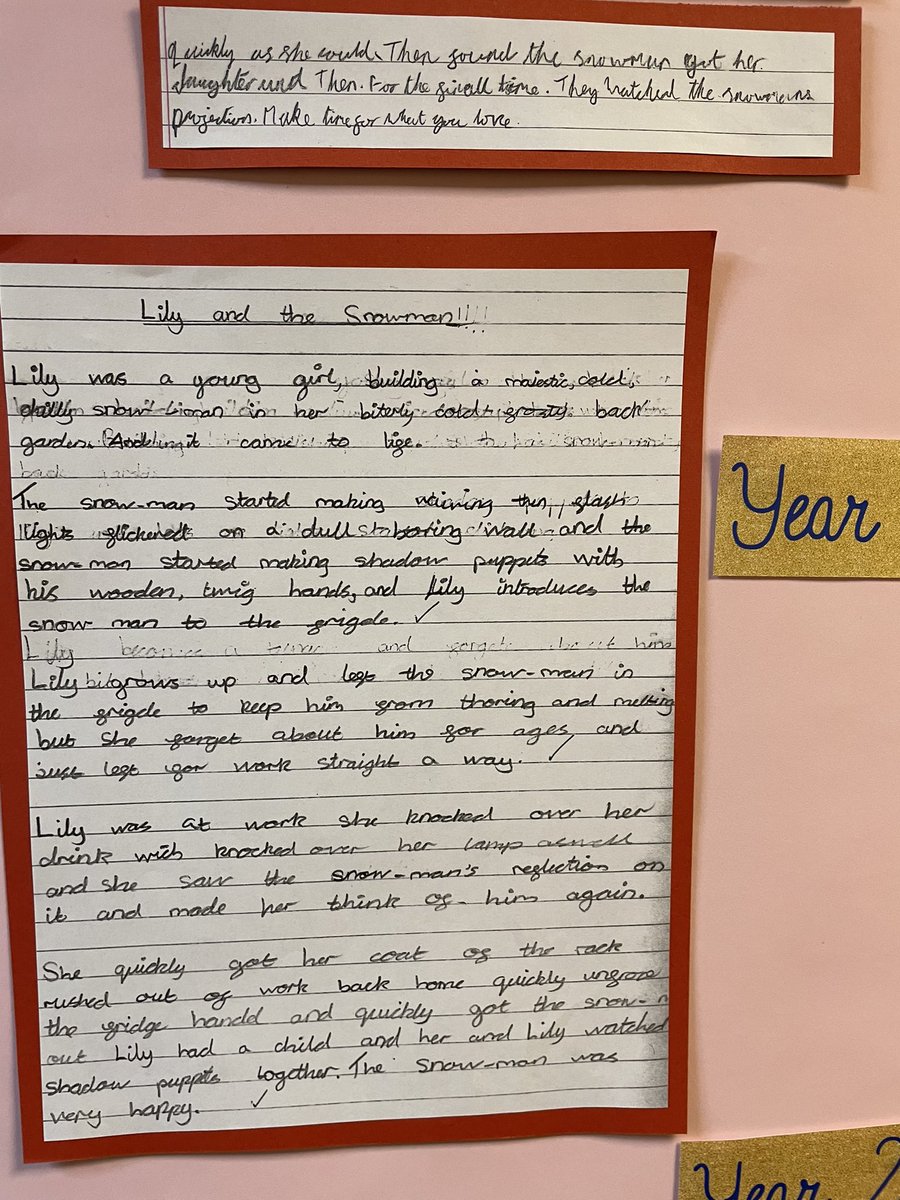 quickly as she could. Then found the snowman got her
daughter and Then. For the finall time. They watched the snowmans
projection. Make time for what you love.
Lily and the Snowman!!!!
Lily was a young girl, building a majestic, cold,
chilly snow man in her biterly cold frosty back
garden. And it came to life.
The snow-man started making waiving then flash
lights flickered on a dull boring wall and the
snow-man started making shadow puppets with
his wooden, twig hands, and Lily introduces the
snow man to the frigde. ✓
Lily and forgets about him
Lily grows up and left the snow-man in
the frigde to keep him from thoring and melting
but she forget about him for ages, and
just left for work straight a way. ✓
Lily was at work she knocked over her
drink wich knocked over her lamp aswell
and she saw the snow-man's reflection on
it and made her think of him again.
She quickly got her coat of the rack
rushed out of work back home quickly unfroze
the fridge handd and quickly got the snow-m
out Lily had a child and her and Lily watched
shadow puppets together. The snow-man was
very happy. ✓
Year
Year 2